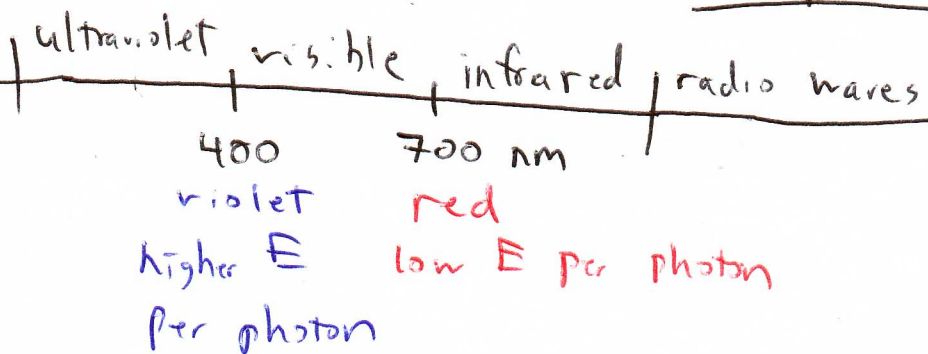 ultraviolet visible infrared radio waves
400 700 nm
violet red
higher E low E per photon
per photon